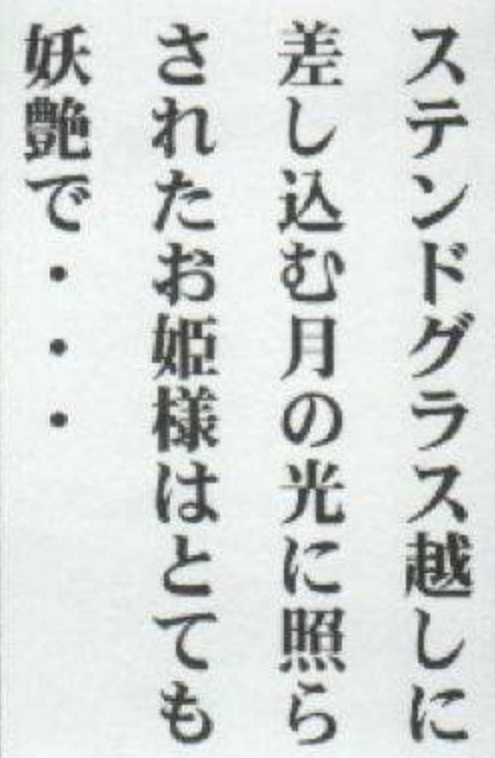 ステンドグラス越しに
差し込む月の光に照ら
されたお姫様はとても
妖艶で・・・